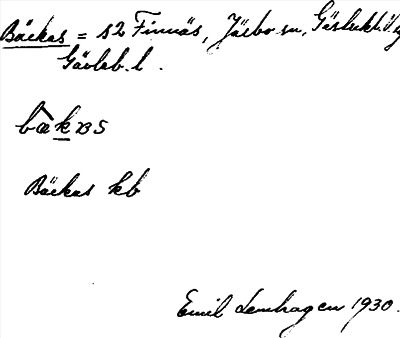 Bäckas = s2 Finnäs, Järbo sn, Gästrikl. Ö.
Gävleb. l.
bäkɐs
Bäckas kb
Emil Lenhagen 1930.